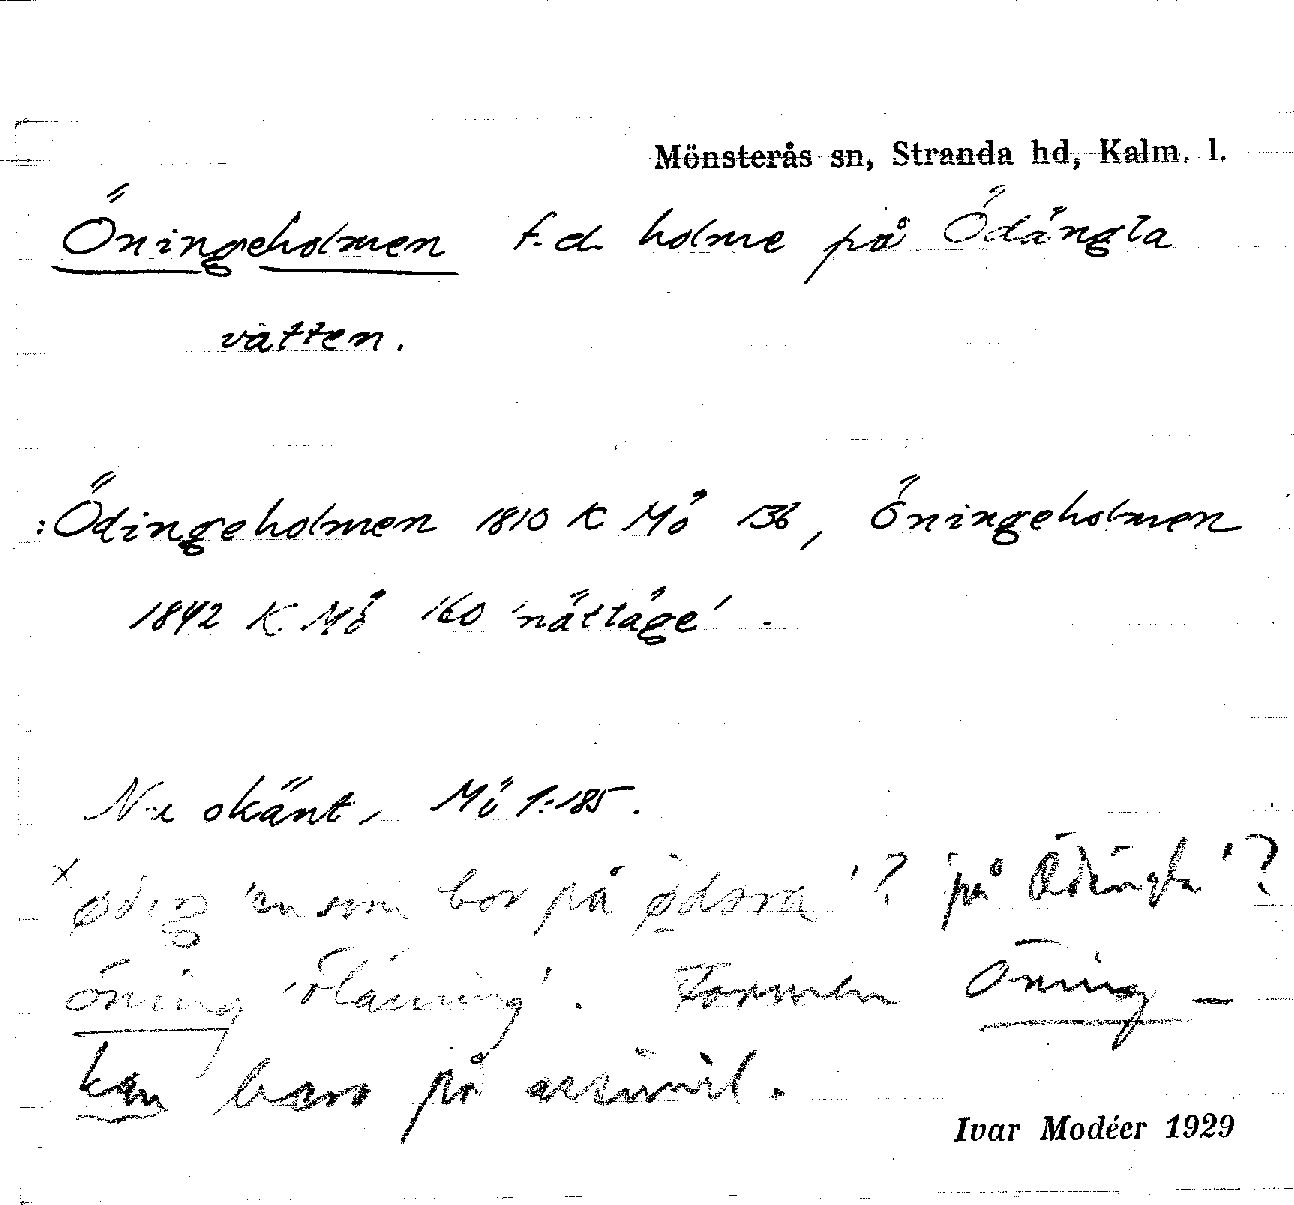 Mönsterås sn, Stranda hd, Kalm. l.
Öningeholmen f.d. holme på Ödängla
vatten.
: Ödingeholmen 1810 K Mö 136, Öningeholmen
1842 K Mö 160 'nätläge'.
Nu okänt, Mö 1:185.
× øding 'en som bor på ødsra'? 'på Ödängla'?
öning 'ölänning'. Formen Öning–
kan bero på assimil.
Ivar Modéer 1929